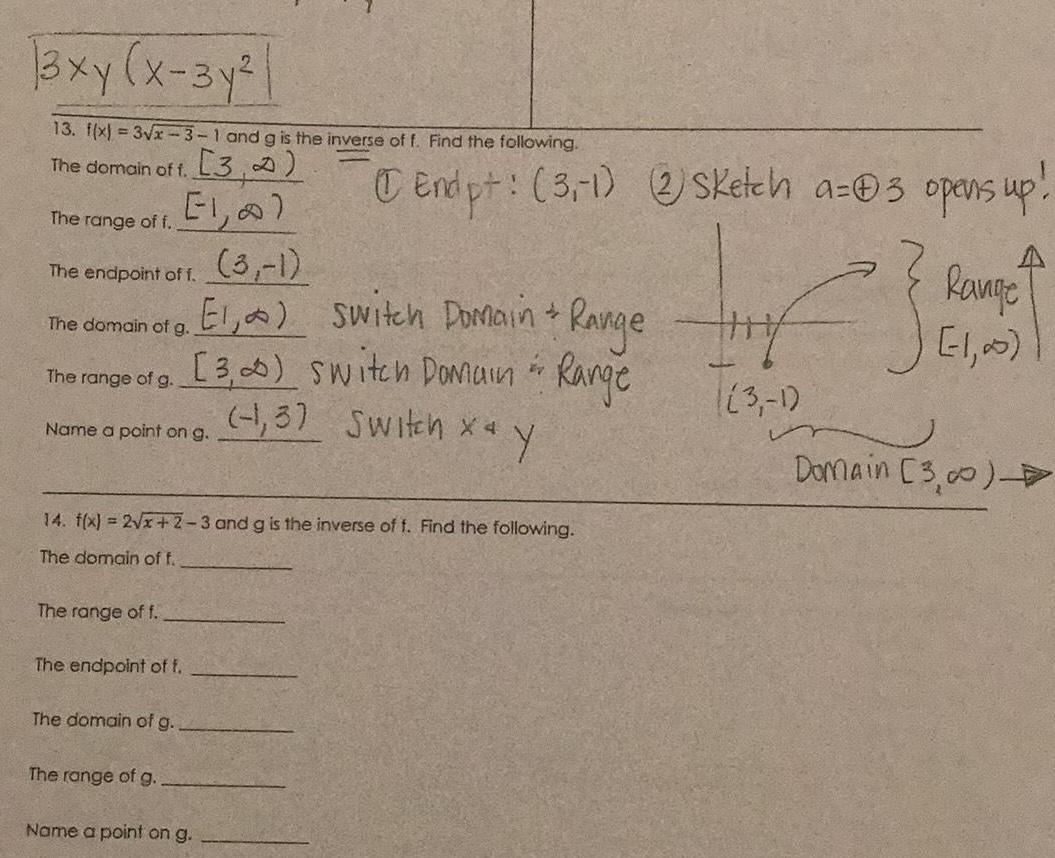 3xy(x-3y²
13. f(x) = 3√x – 3 – 1 and g is the inverse of f. Find the following.
The domain of f. [3, ∞)
① Endpt: (3,-1) ② Sketch a=⊕3 opens up!
The range of f. [-1, ∞)
The endpoint of f. (3,-1)
Range
The domain of g. [-1, ∞) switch Domain + Range
[-1, ∞)
The range of g. [3, ∞) switch Domain + Range
(3,-1)
Name a point on g. (-1,3) Switch x + y
Domain [3, ∞)
14. f(x) = 2√x + 2 – 3 and g is the inverse of f. Find the following.
The domain of f.
The range of f.
The endpoint of f.
The domain of g.
The range of g.
Name a point on g.